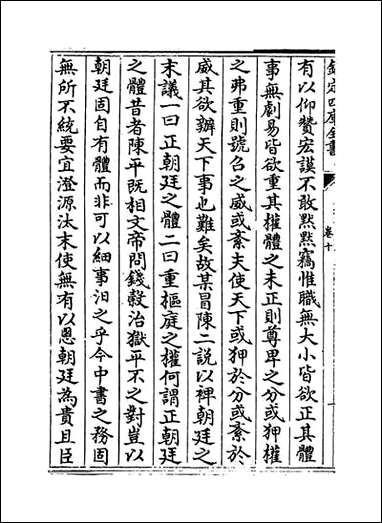 欽定四庫全書
卷十
有以仰贊宏謨不敢黙黙竊惟職無大小皆欲正其體
事無劇易皆欲重其權體之未正則尊卑之分或狎權
之弗重則號令之威或紊夫使天下或狎於分或紊於
威其欲辦天下事也難矣故某冒陳二說以裨朝廷之
末議一曰正朝廷之體二曰重樞庭之權何謂正朝廷
之體昔者陳平既相文帝問錢穀治獄平不之對豈以
朝廷固自有體而非可以細事汨之乎今中書之務固
無所不統要宜澄源汰末使無有以恩朝廷為貴且臣